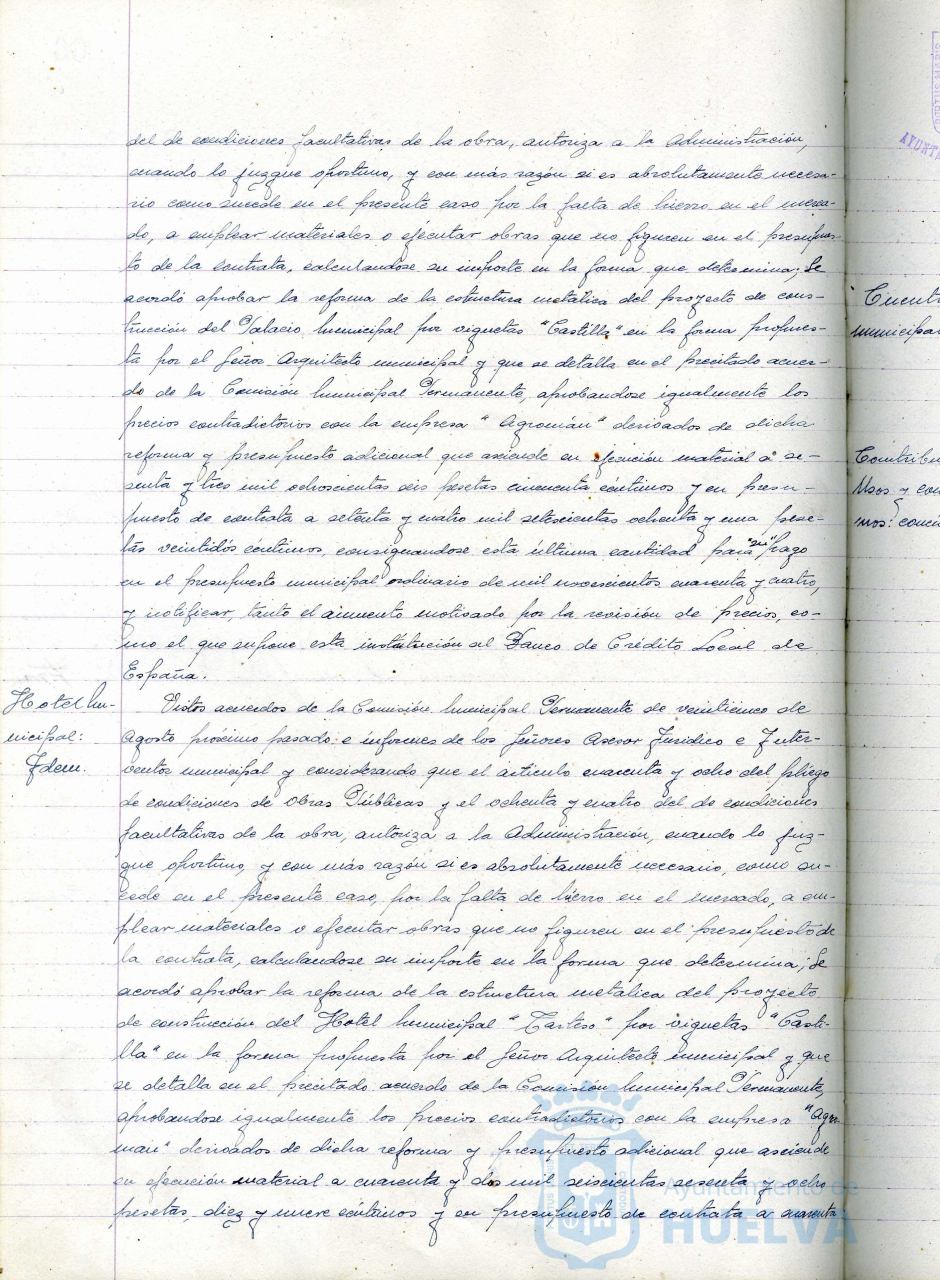 del de condiciones facultativas de la obra, autoriza a la Administración,
cuando lo juzgue oportuno, y con más razón si es absolutamente necesa-
rio como sucede en el presente caso por la falta de hierro en el merca-
do, a emplear materiales o ejecutar obras que no figuren en el presupues-
to de la contrata, calculandose su importe en la forma que determina; Se
acordó aprobar la reforma de la estructura metálica del proyecto de cons-
trucción del Palacio Municipal por viguetas "Castilla" en la forma propues-
ta por el Señor Arquitecto municipal y que se detalla en el precitado acuer-
do de la Comisión Municipal Permanente, aprobandose igualmente los
precios contradictorios con la empresa "Agromán" derivados de dicha
reforma y presupuesto adicional que asciende en ejecución material a se-
senta y tres mil ochoscientas seis pesetas cincuenta céntimos y en presu-
puesto de contrata a setenta y cuatro mil setescientas ochenta y una pese-
tas veintidós céntimos, consignandose esta última cantidad para "su" pago
en el presupuesto municipal ordinario de mil novescientos cuarenta y cuatro,
y notificar, tanto el aumento motivado por la revisión de precios, co-
mo el que supone esta instalación al Banco de Crédito Local de
España.
Hotel Mu-
nicipal:
Idem.
Vistos acuerdos de la Comisión Municipal Permanente de veinticinco de
Agosto próximo pasado e informes de los Señores Asesor Jurídico e Inter-
ventor municipal y considerando que el artículo cuarenta y ocho del pliego
de condiciones de Obras Públicas y el ochenta y cuatro del de condiciones
facultativas de la obra, autoriza a la Administración, cuando lo juz-
gue oportuno, y con más razón si es absolutamente necesario, como su-
cede en el presente caso, por la falta de hierro en el mercado, a em-
plear materiales o ejecutar obras que no figuren en el presupuesto de
la contrata, calculandose su importe en la forma que determina; Se
acordó aprobar la reforma de la estructura metálica del proyecto
de construcción del Hotel Municipal "Tarteso" por viguetas "Casti-
lla" en la forma propuesta por el Señor Arquitecto municipal y que
se detalla en el precitado acuerdo de la Comisión Municipal Permanente,
aprobandose igualmente los precios contradictorios con la empresa "Agro-
man" derivados de dicha reforma y presupuesto adicional que asciende
en ejecución material a cuarenta y dos mil seiscientas sesenta y ocho
pesetas, diez y nueve céntimos y en presupuesto de contrata a cuarenta
Ayuntamiento de
HUELVA